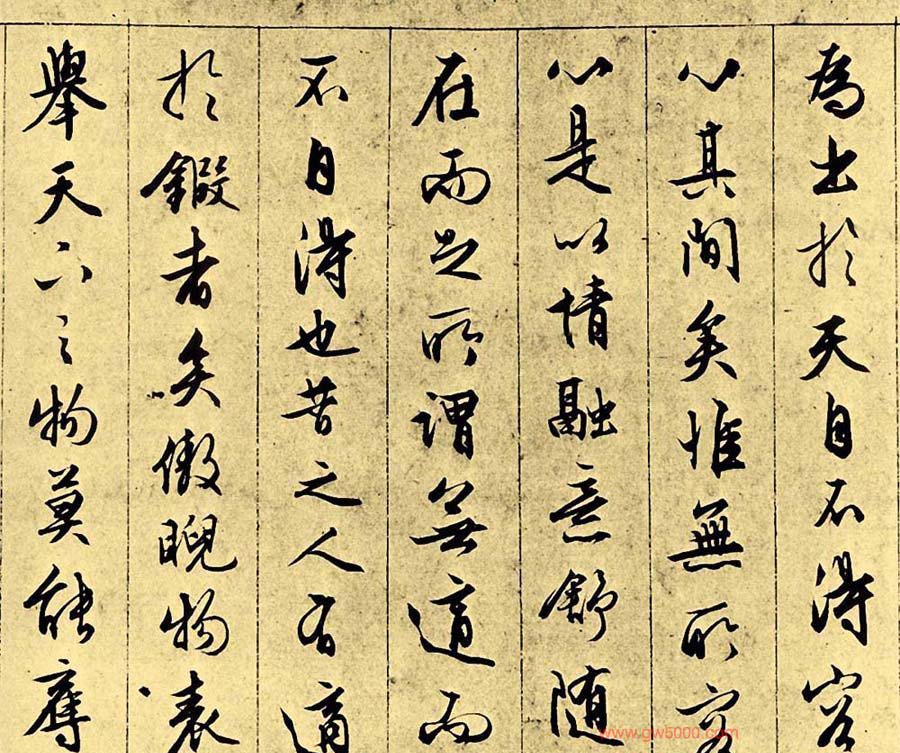 為出於天自不得容
心其間矣惟無所容
心是以情融意舒隨
在而足所謂無適而
不自得也昔之人有適
於鍛者矣傲睨物表
舉天下之物莫能奪
www.gw5000.com